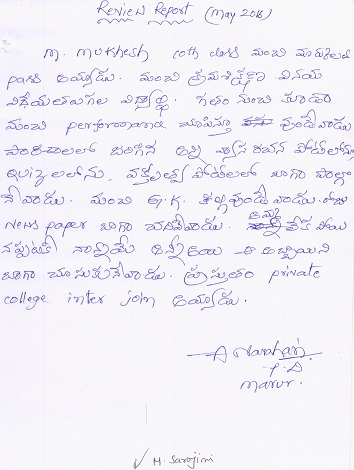 Review Report (May 2016)
M. Mukhesh 10th class మంచి మార్కులతో
pass అయ్యాడు. మంచి క్రమశిక్షణ వినయ
విధేయతలుగల విద్యార్థి. గతం నుంచి కూడా
మంచి performance చూపిస్తూ వుండేవాడు
పాఠశాలలో జరిగిన అన్ని వ్యాస రచన పోటీలలోను
Quiz లలోను, వక్తృత్వ పోటీలలో బాగా పాల్గొ
నేవాడు. మంచి G.K. వుండేవాడు. రోజు
News paper బాగా చదివేవాడు. అమ్మ లేక పోయి
నప్పటికీ నాన్నమే అన్నీ అయి ఆ అబ్బాయిని
బాగా చూసుకునేవాడు. ప్రస్తుతం private
college inter join అయ్యాడు.
P.D
Marur.
✓ M. Sarojini